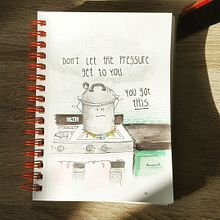 DON'T LET THE PRESSURE
GET TO YOU.
YOU GOT
THIS.